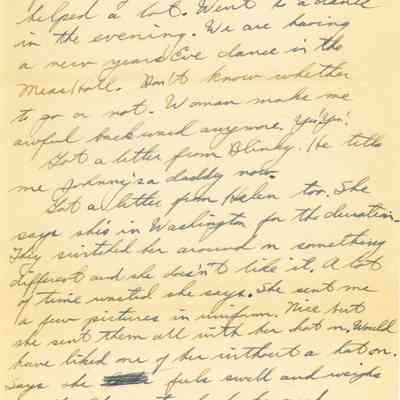 helped a lot. Went to a dance
in the evening. We are having
a new years Eve dance in the
Mess Hall. Don't know whether
to go or not. Woman make me
awful backward anymore. Yi! Yi!
Got a letter from Blinky. He tells
me Johnny's a daddy now.
Got a letter from Helen too. She
says she's in Washington for the duration.
They switched her around n something
different and she doesn't like it. A lot
of time wasted she says. She sent me
a few pictures in uniform. Nice but
she sent them all with her hat on. Would
have liked one of her without a hat on.
Says she feels swell and weighs